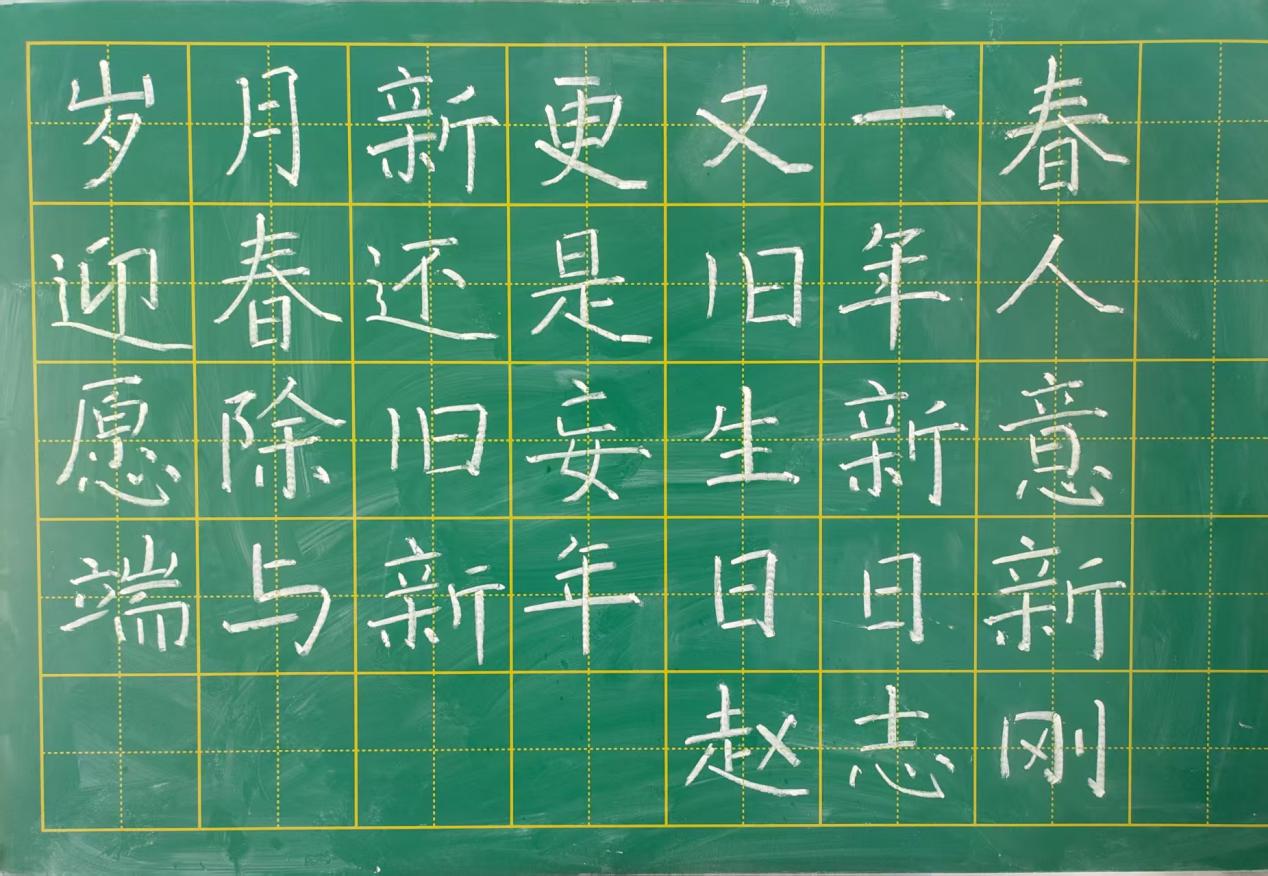 岁月新更又一春
迎春还是旧年人
愿除旧妄生新意
端与新年日日新
赵志刚